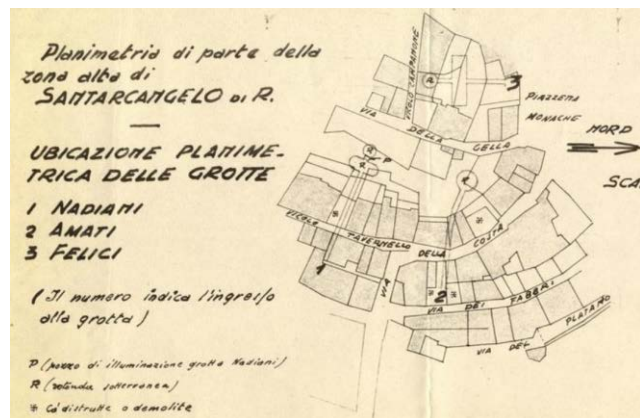 Planimetria di parte della
zona alta di
SANTARCANGELO DI R.
UBICAZIONE PLANIME-
TRICA DELLE GROTTE
1 NADIANI
2 AMATI
3 FELICI
(Il numero indica l'ingresso
alla grotta)
P (pozzo di illuminazione grotta Nadiani)
R (rotonda sotterranea)
* Ca' distrutte o demolite
VICOLO CAMPANONE
R
3
PIAZZETTA
MONACHE
VIA DELLA CELLA
NORD
SCA
R
P
R
R
VICOLO TAVERNELLO
DELLA COSTA
1
VIA
2
VIA DEI FABBRI
VIA DEL PLATANO